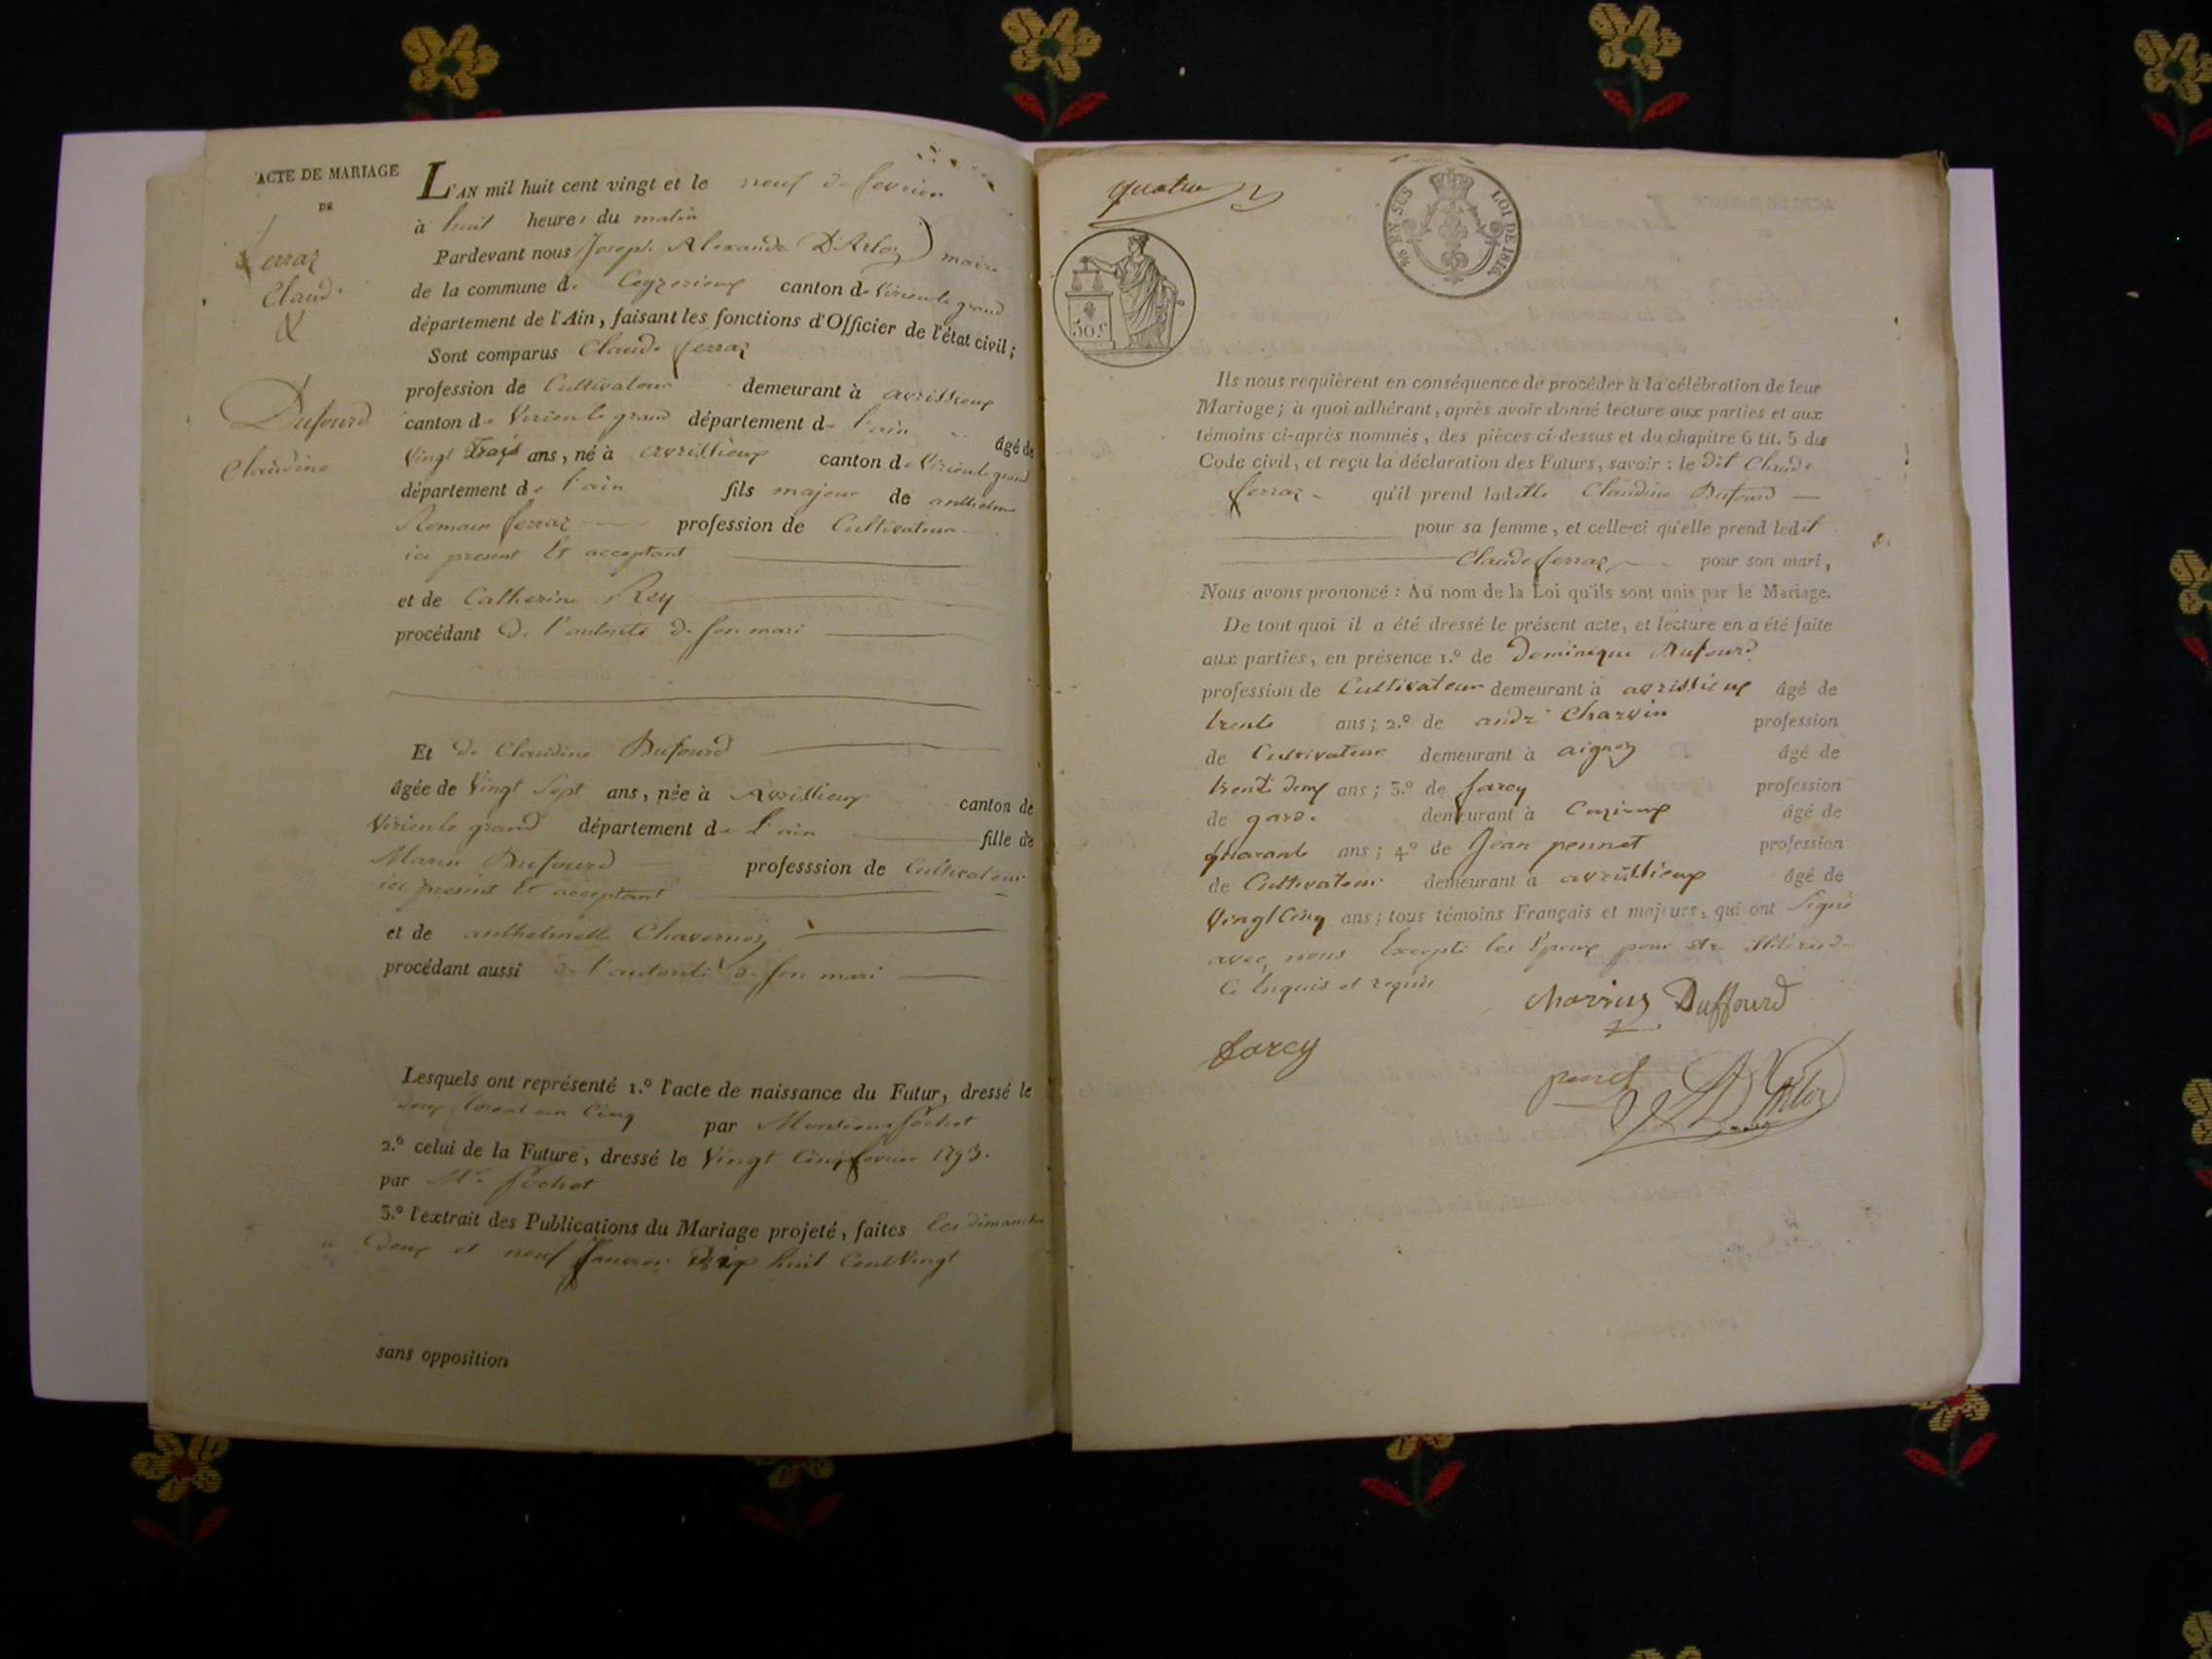 ACTE DE MARIAGE
DE
ferraz
Claude
&
Dufourd
Claudine
L'AN mil huit cent vingt et le neuf de fevrier
à huit heures du matin
Pardevant nous Joseph Alexandre D'Arloz maire
de la commune de Ceyzerieux canton de Virieu le grand
département de l'Ain, faisant les fonctions d'Officier de l'état civil;
Sont comparus Claude ferraz
profession de Cultivateur demeurant à avrissieux
canton de Virieu le grand département de l'ain âgé de
Vingt Trois ans, né à avrissieux canton de Virieu le grand
département de l'ain fils majeur de anthelme
Romain ferraz profession de Cultivateur
ici present Et acceptant
et de Catherine Rey
procédant De l'autorité de son mari
Et de Claudine Dufourd
âgée de Vingt Sept ans, née à Avrissieux canton de
Virieu le grand département de L'ain fille de
Marin Dufourd professsion de Cultivateur
ici present Et acceptant
et de anthelmette Chavernoz
procédant aussi de l'autorité de son mari
Lesquels ont représenté 1.º l'acte de naissance du Futur, dressé le
deux floreal an Cinq par Monsieur Pochet
2.º celui de la Future, dressé le Vingt Cinq fevrier 1793.
par Mr. Pochet
3.º l'extrait des Publications du Mariage projeté, faites les dimanches
Deux et neuf Janvier Dix huit Cent Vingt
sans opposition
quatre
¼ EN SUS LOI DE 1816.
50 c
Ils nous requièrent en conséquence de procéder à la célébration de leur
Mariage; à quoi adhérant, après avoir donné lecture aux parties et aux
témoins ci-après nommés, des pièces ci-dessus et du chapitre 6 tit. 5 du
Code civil, et reçu la déclaration des Futurs, savoir: le dit Claude
ferraz qu'il prend ladette Claudine Dufourd
pour sa femme, et celle-ci qu'elle prend ledit
Claude ferraz pour son mari,
Nous avons prononcé: Au nom de la Loi qu'ils sont unis par le Mariage.
De tout quoi il a été dressé le présent acte, et lecture en a été faite
aux parties, en présence 1.º de Dominique Dufourd
profession de Cultivateur demeurant à avrissieux âgé de
trente ans; 2.º de andré Charvin profession
de Cultivateur demeurant à aignoz âgé de
trente deux ans; 3.º de farcy profession
de garde demeurant à Cezrieux âgé de
quarante ans; 4.º de Jean pennet profession
de Cultivateur demeurant à avrissieux âgé de
Vingt Cinq ans; tous témoins Français et majeurs, qui ont Signé
avec nous Excepté les Epoux pour etre illitérés de
Ce Enquis et requis
Charvin Duffourd
farcy
penet
D'Arloz